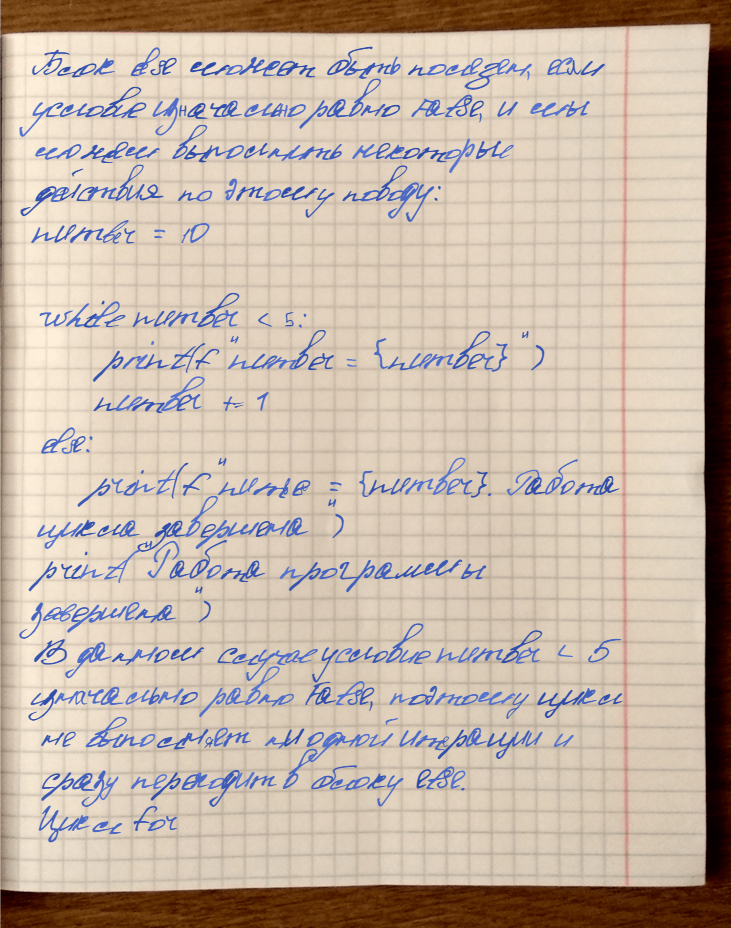 Блок else может быть полезен, если
условие изначально равно False, и мы
можем выполнить некоторые
действия по этому поводу:
number = 10
while number < 5:
print(f"number = {number}")
number += 1
else:
print(f"number = {number}. Работа
цикла завершена")
print("Работа программы
завершена")
В данном случае условие number < 5
изначально равно False, поэтому цикл
не выполняет ни одной итерации и
сразу переходит в блоку else.
Цикл for